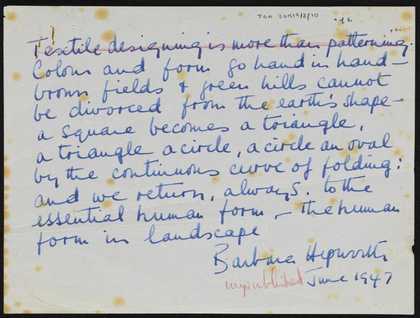 TGA 20132/2/10
Textile designing is more than patterning
Colour and form go hand in hand –
brown fields & green hills cannot
be divorced from the earth's shape –
a square becomes a triangle,
a triangle a circle, a circle an oval
by the continuous curve of folding:
and we return, always, to the
essential human form – the human
form in landscape
Barbara Hepworth
unpublished June 1947